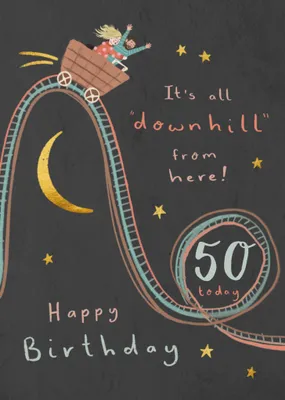 It's all
"downhill"
from
here!
50
today
Happy
Birthday